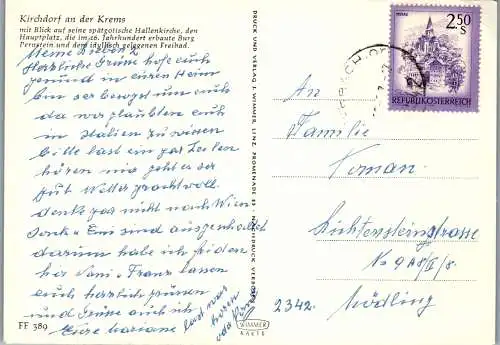 Kirchdorf an der Krems
mit Blick auf seine spätgotische Hallenkirche, den
Hauptplatz, die im 16. Jahrhundert erbaute Burg
Pernstein und dem idyllisch gelegenen Freibad.
Meine Lieben 2
Herzliche Grüsse hoffe euch
gesund in euren Heim
bin ser besorgt um euch
da wir glaubten euch
in Italien zu wissen
bitte last ein par Zeilen
hören wie geht es ser
gut Wetter prachtvoll
denkt gar nicht nach Wien
Emi sind ausgeschaltet
darum habe ich frieden
her Vani u Franz lassen
euch herzlich grüssen
und Grüsse auch ich
Eure Mariane
last was
hören
FF 389
DRUCK UND VERLAG J. WIMMER, LINZ, PROMENADE 23 NACHDRUCK VERBOTEN
WIMMER
KARTE
2.50
S
REPUBLIK ÖSTERREICH
An
Familie
Vornan
Lichtensteinstrasse
No 9A8/II/8.
2342. Mödling